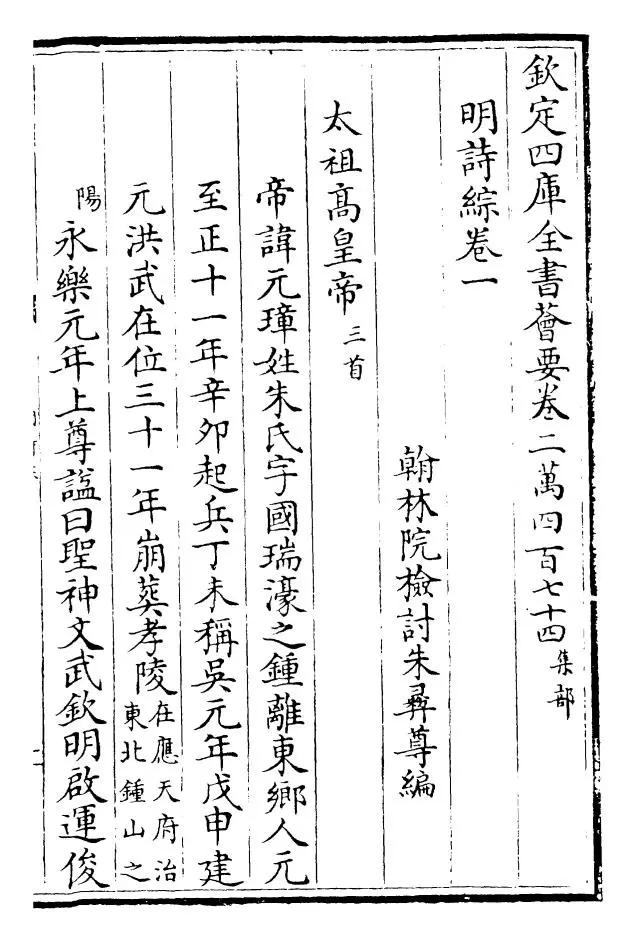 欽定四庫全書薈要卷二萬四百七十四集部
明詩綜卷一
翰林院檢討朱彝尊編
太祖高皇帝三首
帝諱元璋姓朱氏字國瑞濠之鍾離東鄉人元
至正十一年辛卯起兵丁未稱吳元年戊申建
元洪武在位三十一年崩葬孝陵在應天府治東北鍾山之
陽永樂元年上尊諡曰聖神文武欽明啟運俊